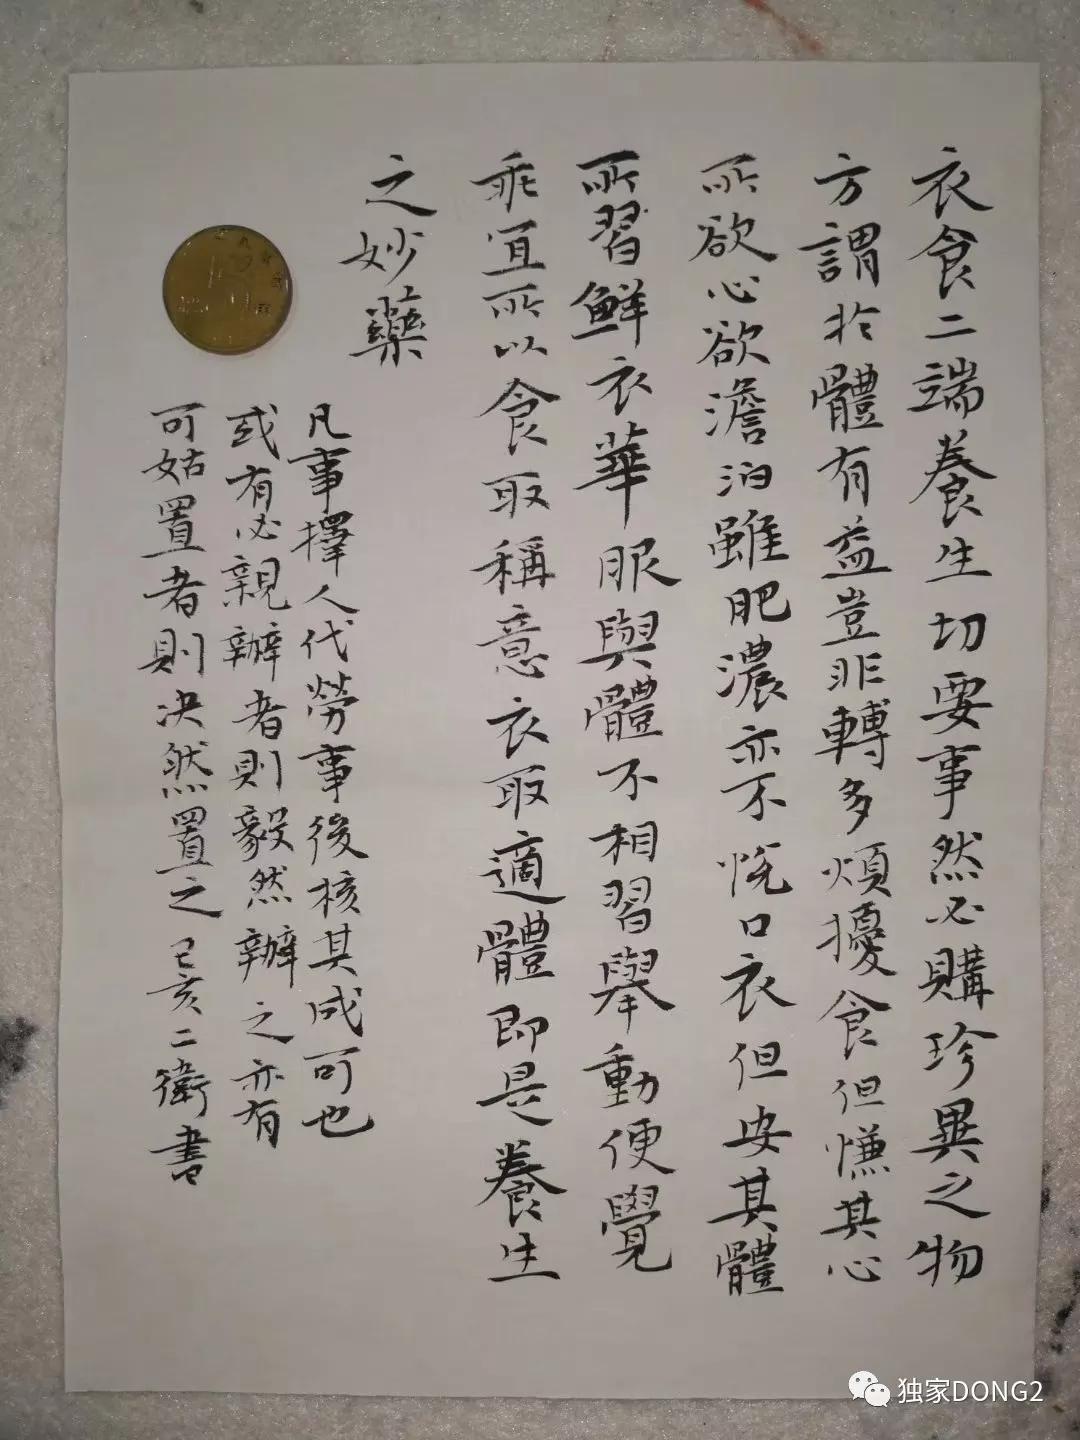 衣食二端養生切要事然必購珍異之物
方謂於體有益豈非轉多煩擾食但慊其心
所欲心欲澹泊雖肥濃亦不悅口衣但安其體
所習鮮衣華服與體不相習舉動便覺
乖宜所以食取稱意衣取適體即是養生
之妙藥
凡事擇人代勞事後核其成可也
或有必親辦者則毅然辦之亦有
可姑置者則決然置之 己亥二衛書
独家DONG2